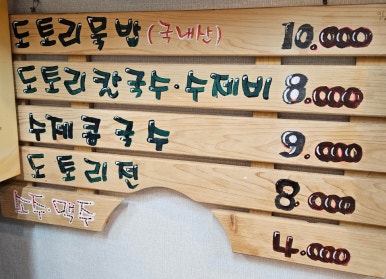 도토리묵밥 (국내산) 10.000
도토리칼국수·수제비 8.000
수제콩국수 9.000
도토리전 8.000
소주·맥주 4.000